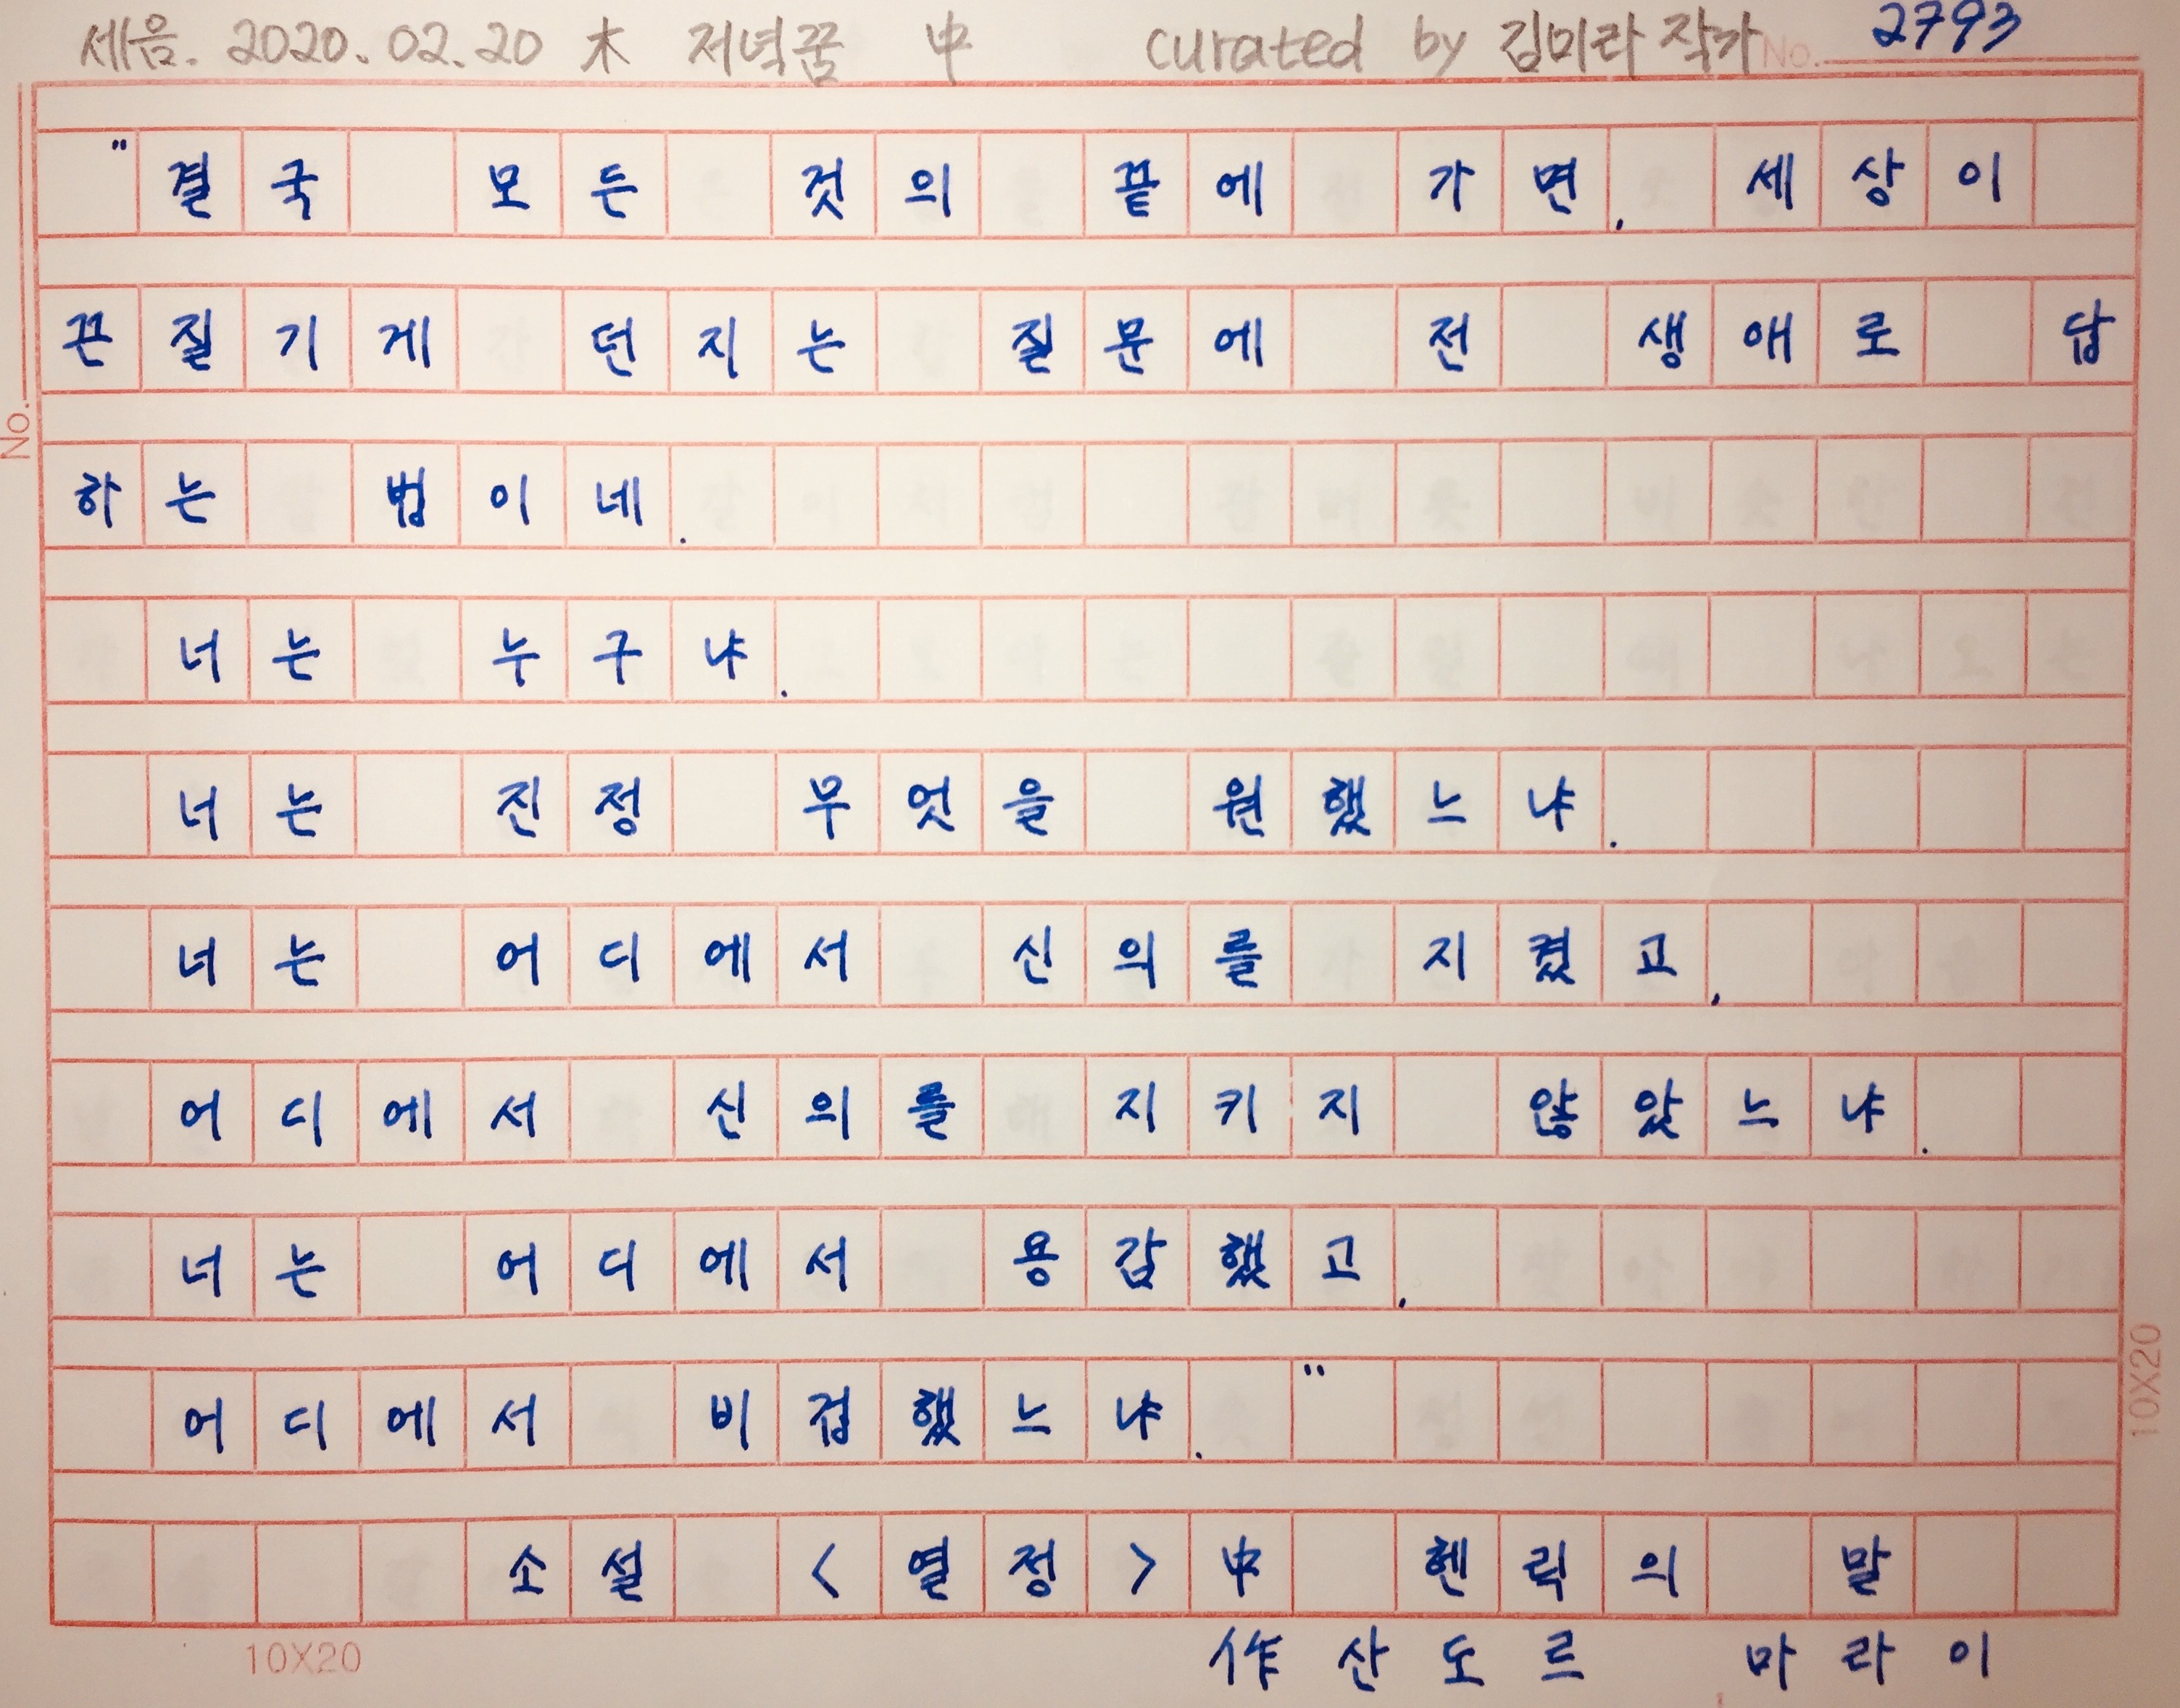 세음. 2020.02.20 木 저녁꿈 中 curated by 김미라 작가 No. 2793
"결국 모든 것의 끝에 가면, 세상이
끈질기게 던지는 질문에 전 생애로 답
No.
하는 법이네.
너는 누구냐.
너는 진정 무엇을 원했느냐.
너는 어디에서 신의를 지켰고,
어디에서 신의를 지키지 않았느냐.
너는 어디에서 용감했고,
어디에서 비겁했느냐."
10X20
소설 <열정>中 헨릭의 말
10X20
作 산도르 마라이